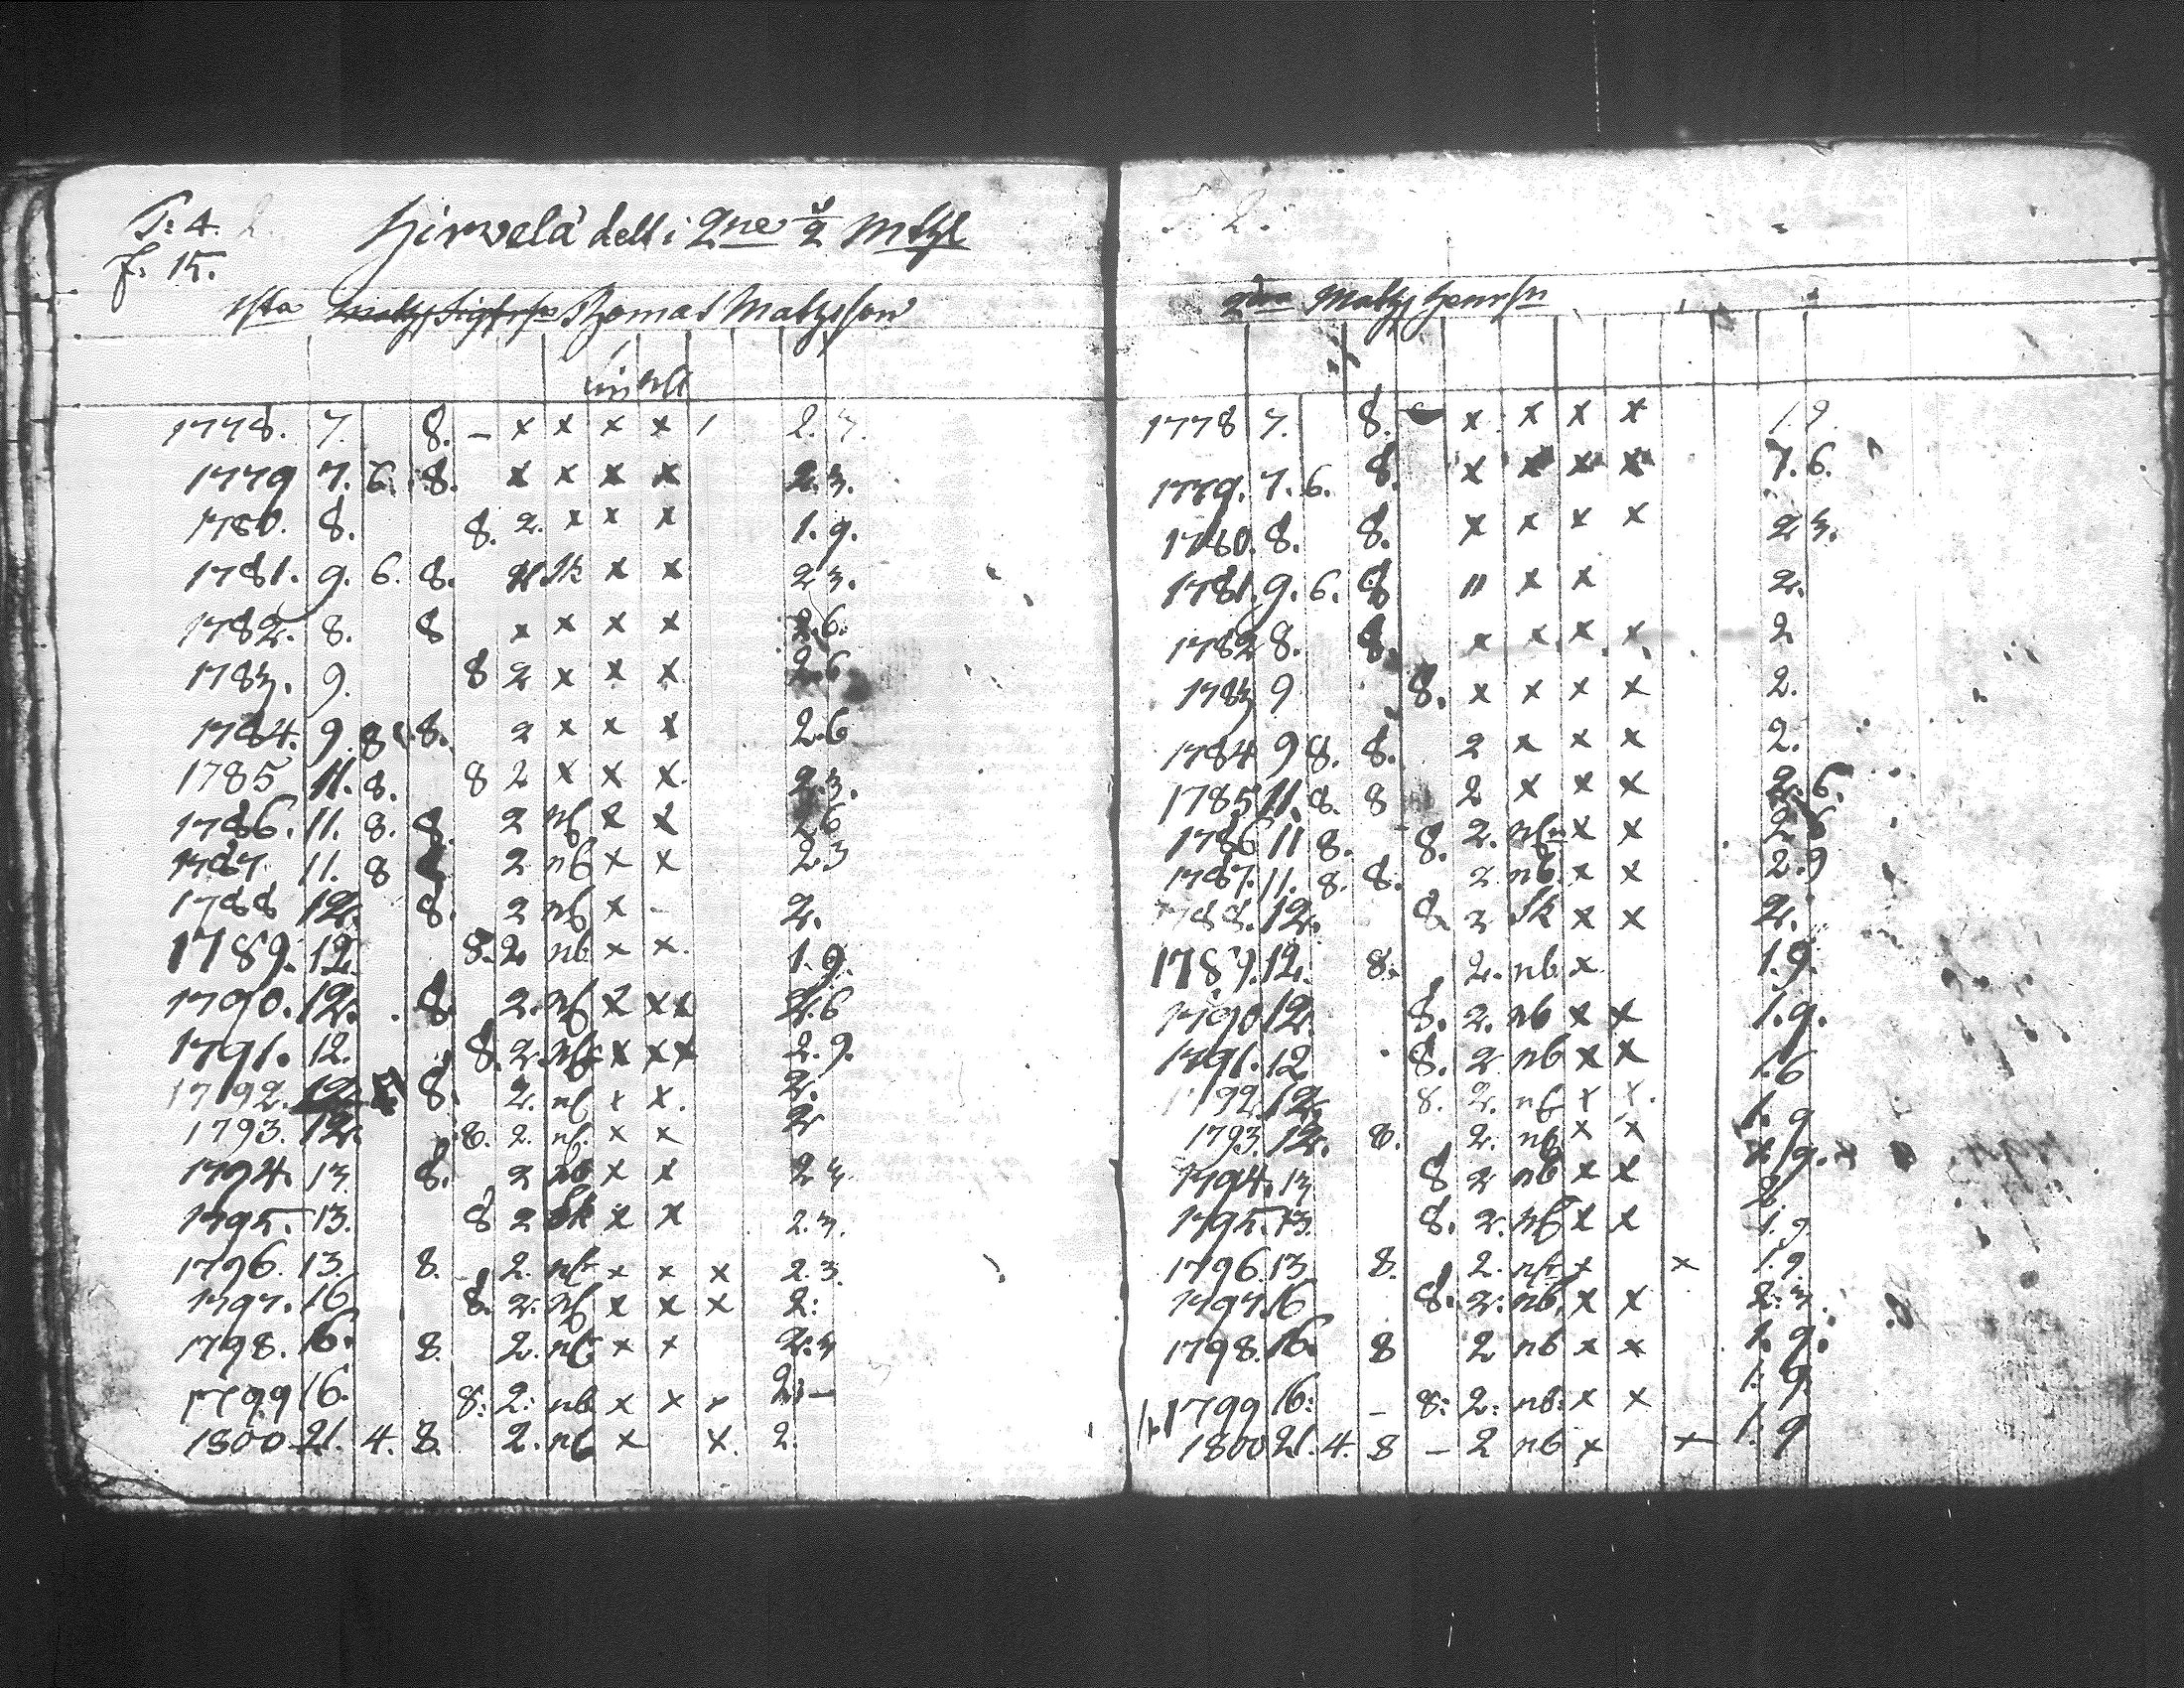 T: 4.
f. 15.
Hirvelä delt i 2ne ½ Mtyl
1sta Matz Sigfrsn Thomas Matzsson
1778. 7. 8. – x x x x 2. 7.
1779 7. 6. 8. x x x x 2. 3.
1780. 8. 8. 2. x x x 1. 9.
1781. 9. 6. 8. Sk x x 2 3.
1782. 8. 8 x x x x 2. 6.
1783. 9. 8 2 x x x 2. 6
1784. 9. 8. 8. 2 x x x 2. 6
1785 11. 8. 8 2 x x x 2. 3.
1786. 11. 8. 8. 2 nb x x 2 6
1787. 11. 8 2 nb x x 2 3
1788 12. 8. 2 nb x – 2.
1789. 12. 8. 2 nb x x 1. 9.
1790. 12. 8. 2. nb x x x 2. 6
1791. 12. 8. 2. nb x x x 2. 9.
1792. 12. 8. 2. nb x x 2.
1793. 12. 8. 2. nb. x x 2
1794. 13. 8. 2 nb x x 2 3.
1795. 13. 8 2 Sk x x 2. 3.
1796. 13. 8. 2. nb x x x 2. 3.
1797. 16 8. 2. nb x x x 2:
1798. 16. 8. 2. nb x x 2: 3
1799 16. 8: 2: nb x x x 2: –
1800 21. 4. 8. 2. nb x x. 2.
2dra Matz Henrsn
1778 7. 8. x x x x 1. 9.
1779. 7. 6. 8. x x x x 7. 6.
1780. 8. 8. x x x x 2 3.
1781. 9. 6. 8 " x x 2.
1782 8. 8. x x x x 2
1783 9 8. x x x x 2.
1784 9 8. 8. 2 x x x 2.
1785 11. 8. 8 2 x x x 2. 6.
1786 11 8. 8. 2. nb x x 2 6
1787. 11. 8. 8. 2 nb x x 2. 9
1788. 12. 8. 2 Sk x x 2.
1789. 12. 8. 2. nb x 1. 9.
1790 12. 8. 2. nb x x 1. 9.
1791. 12 8. 2 nb x x 1. 6
1792. 12. 8. 2. nb x x. 1. 9
1793. 12. 8. 2. nb x x 9.
1794. 13 8 2 nb x x 2
1795. 13. 8. 2. nb x x 1. 9.
1796. 13. 8. 2. nb x x 1. 9.
1797. 16 8. 2: nb. x x 2: 3.
1798. 16. 8 2 nb x x 1. 9.
1799 16: – 8: 2: nb: x x 1. 9.
1800 21. 4. 8 – 2 nb x x 1. 9